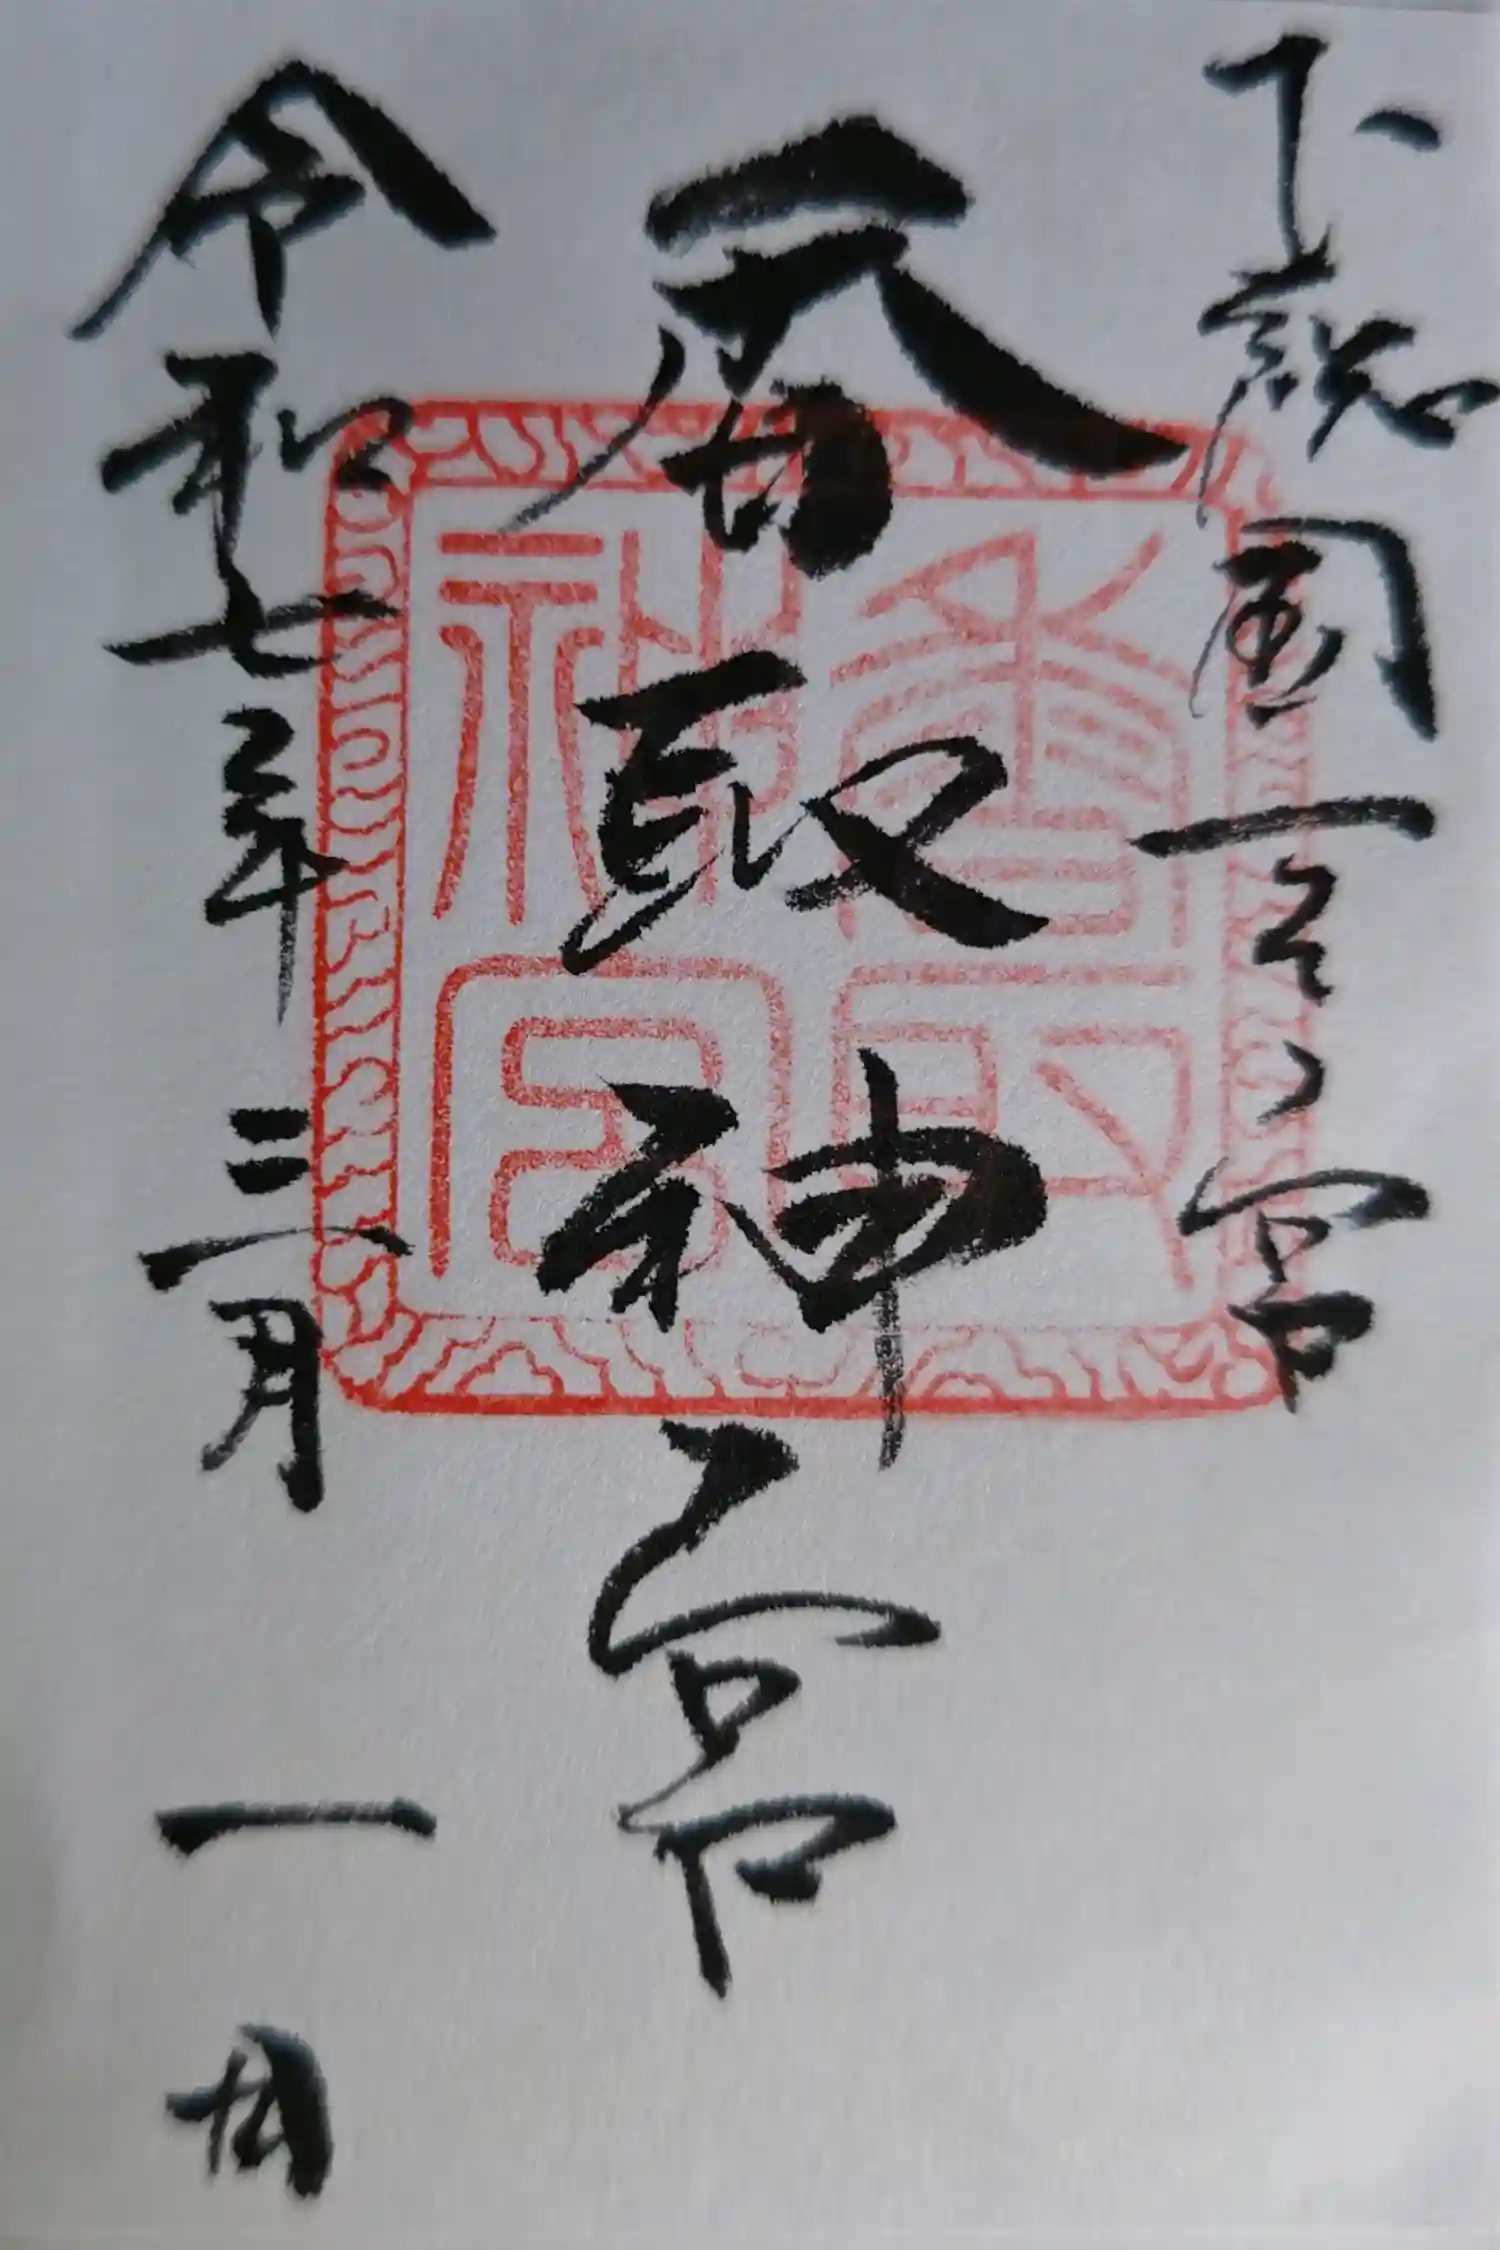 下総国一之宮
香取神宮
香取神宮
令和七年三月一日